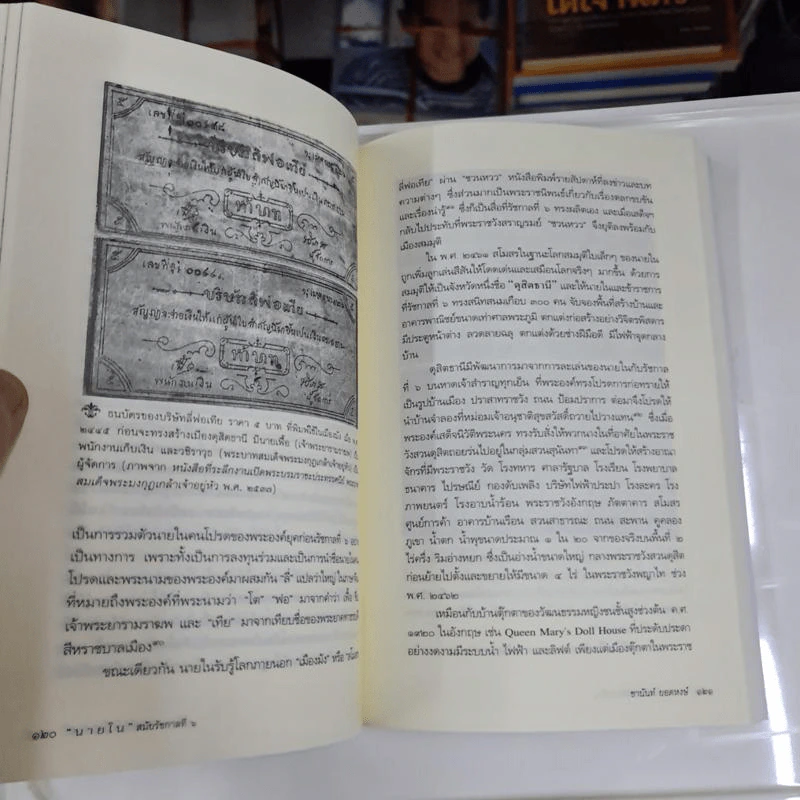 เลขที่
บริษัทลี่ฟอเทีย
ห้าบาท
เลขที่
บริษัทลี่ฟอเทีย
ห้าบาท
พนักงานเงิน
ธนบัตรของบริษัทลี่ฟอเทีย ราคา ๕ บาท ที่พิมพ์ใช้ในเมืองมัง เมื่อ พ.ศ.
๒๔๔๕ ก่อนจะทรงสร้างเมืองดุสิตธานี มีนายเฟื้อ (เจ้าพระยารามราฆพ) เป็น
พนักงานเก็บเงิน และวชิราวุธ (พระบาทสมเด็จพระมงกุฎเกล้าเจ้าอยู่หัว)
ผู้จัดการ (ภาพจาก หนังสือที่ระลึกงานเปิดพระบรมราชะประทรรศนีย์
สมเด็จพระมงกุฎเกล้าเจ้าอยู่หัว พ.ศ. ๒๕๓๗)
เป็นการรวมตัวนายในคนโปรดของพระองค์ยุคก่อนรัชกาลที่ ๖
เป็นทางการ เพราะทั้งเป็นการลงทุนร่วมและเป็นการนำชื่อนายใน
โปรดและพระนามของพระองค์มาผสมกัน "ลี่" แปลว่าใหญ่ ในภาษา
ที่หมายถึงพระองค์ที่พระนามว่า "โต" "ฟอ" มาจากคำว่า เฟื้อ
เจ้าพระยารามราฆพ และ "เทีย" มาจากเทียบชื่อของพระยา
สีหราชบาลเมือง
ขณะเดียวกัน นายในรับรู้โลกภายนอก "เมืองมัง" หรือ
๑๒๐ "นายใน" สมัยรัชกาลที่ ๖
ลี่ฟอเทีย" ผ่าน "ชวนหวว" หนังสือพิมพ์รายสัปดาห์ที่ลงข่าวและบท
ความต่างๆ ซึ่งส่วนมากเป็นพระราชนิพนธ์เกี่ยวกับเรื่องตลกขบขัน
และเรื่องน่ารู้ ซึ่งก็เป็นสื่อที่รัชกาลที่ ๖ ทรงผลิตเอง และเมื่อเสด็จฯ
กลับไปประทับที่พระราชวังสราญรมย์ "ชวนหวว" จึงยุติลงพร้อมกับ
เมืองสมมุติ
ใน พ.ศ. ๒๔๖๑ สโมสรในฐานะโลกสมมุติใบเล็กๆ ของนายใน
ถูกเพิ่มลูกเล่นสีสันให้โดดเด่นและเสมือนโลกจริงๆ มากขึ้น ด้วยการ
สมมุติให้เป็นจังหวัดหนึ่งชื่อ "ดุสิตธานี" และให้นายในและข้าราชการ
ที่รัชกาลที่ ๖ ทรงสนิทสนมเกือบ ๓๐๐ คน จับจองพื้นที่สร้างบ้านและ
อาคารพาณิชย์ขนาดเท่าศาลพระภูมิ ตกแต่งก่อสร้างอย่างวิจิตรพิสดาร
มีประตูหน้าต่าง ลวดลายฉลุ ตกแต่งด้วยช่างฝีมือดี มีไฟฟ้าจุดกลาง
บ้าน
ดุสิตธานีมีพัฒนาการมาจากการละเล่นของนายในกับรัชกาล
ที่ ๖ บนหาดเจ้าสำราญทุกเย็น ที่พระองค์ทรงโปรดการก่อทรายให้
เป็นรูปบ้านเมือง ปราสาทราชวัง ถนน ป้อมปราการ ต่อมาจึงโปรดให้
นำบ้านจำลองที่หม่อมเจ้าอนุชาติสุขสวัสดิ์ถวายไปวางแทน ซึ่งเมื่อ
พระองค์เสด็จนิวัติพระนคร ทรงรับสั่งให้พวกนางในที่อาศัยในพระราช
วังสวนดุสิตถอยร่นไปอยู่ในกลุ่มสวนสุนันทา และโปรดให้สร้างอาณา
จักรที่มีพระราชวัง วัด โรงทหาร ศาลารัฐบาล โรงเรียน โรงพยาบาล
ธนาคาร ไปรษณีย์ กองดับเพลิง บริษัทไฟฟ้าประปา โรงละคร โรง
ภาพยนตร์ โรงอาบน้ำร้อน พระราชวังอังกฤษ ภัตตาคาร สโมสร
ศูนย์การค้า อาคารบ้านเรือน สวนสาธารณะ ถนน สะพาน คูคลอง
ภูเขา น้ำตก น้ำพุขนาดประมาณ ๑ ใน ๒๐ จากของจริงบนพื้นที่ ๒
ไร่ครึ่ง ริมอ่างหยก ซึ่งเป็นอ่างน้ำขนาดใหญ่ กลางพระราชวังสวนดุสิต
ก่อนย้ายไปตั้งและขยายให้มีขนาด ๔ ไร่ ในพระราชวังพญาไท ช่วง
พ.ศ. ๒๔๖๒
เหมือนกับบ้านตุ๊กตาของวัฒนธรรมหญิงชนชั้นสูงช่วงต้น ค.ศ.
๑๙๒๐ ในอังกฤษ เช่น Queen Mary's Doll House ที่ประดับประดา
อย่างงดงามมีระบบน้ำ ไฟฟ้า และลิฟต์ เพียงแต่เมืองตุ๊กตาในพระราช
ชานันท์ ยอดหงษ์ ๑๒๑